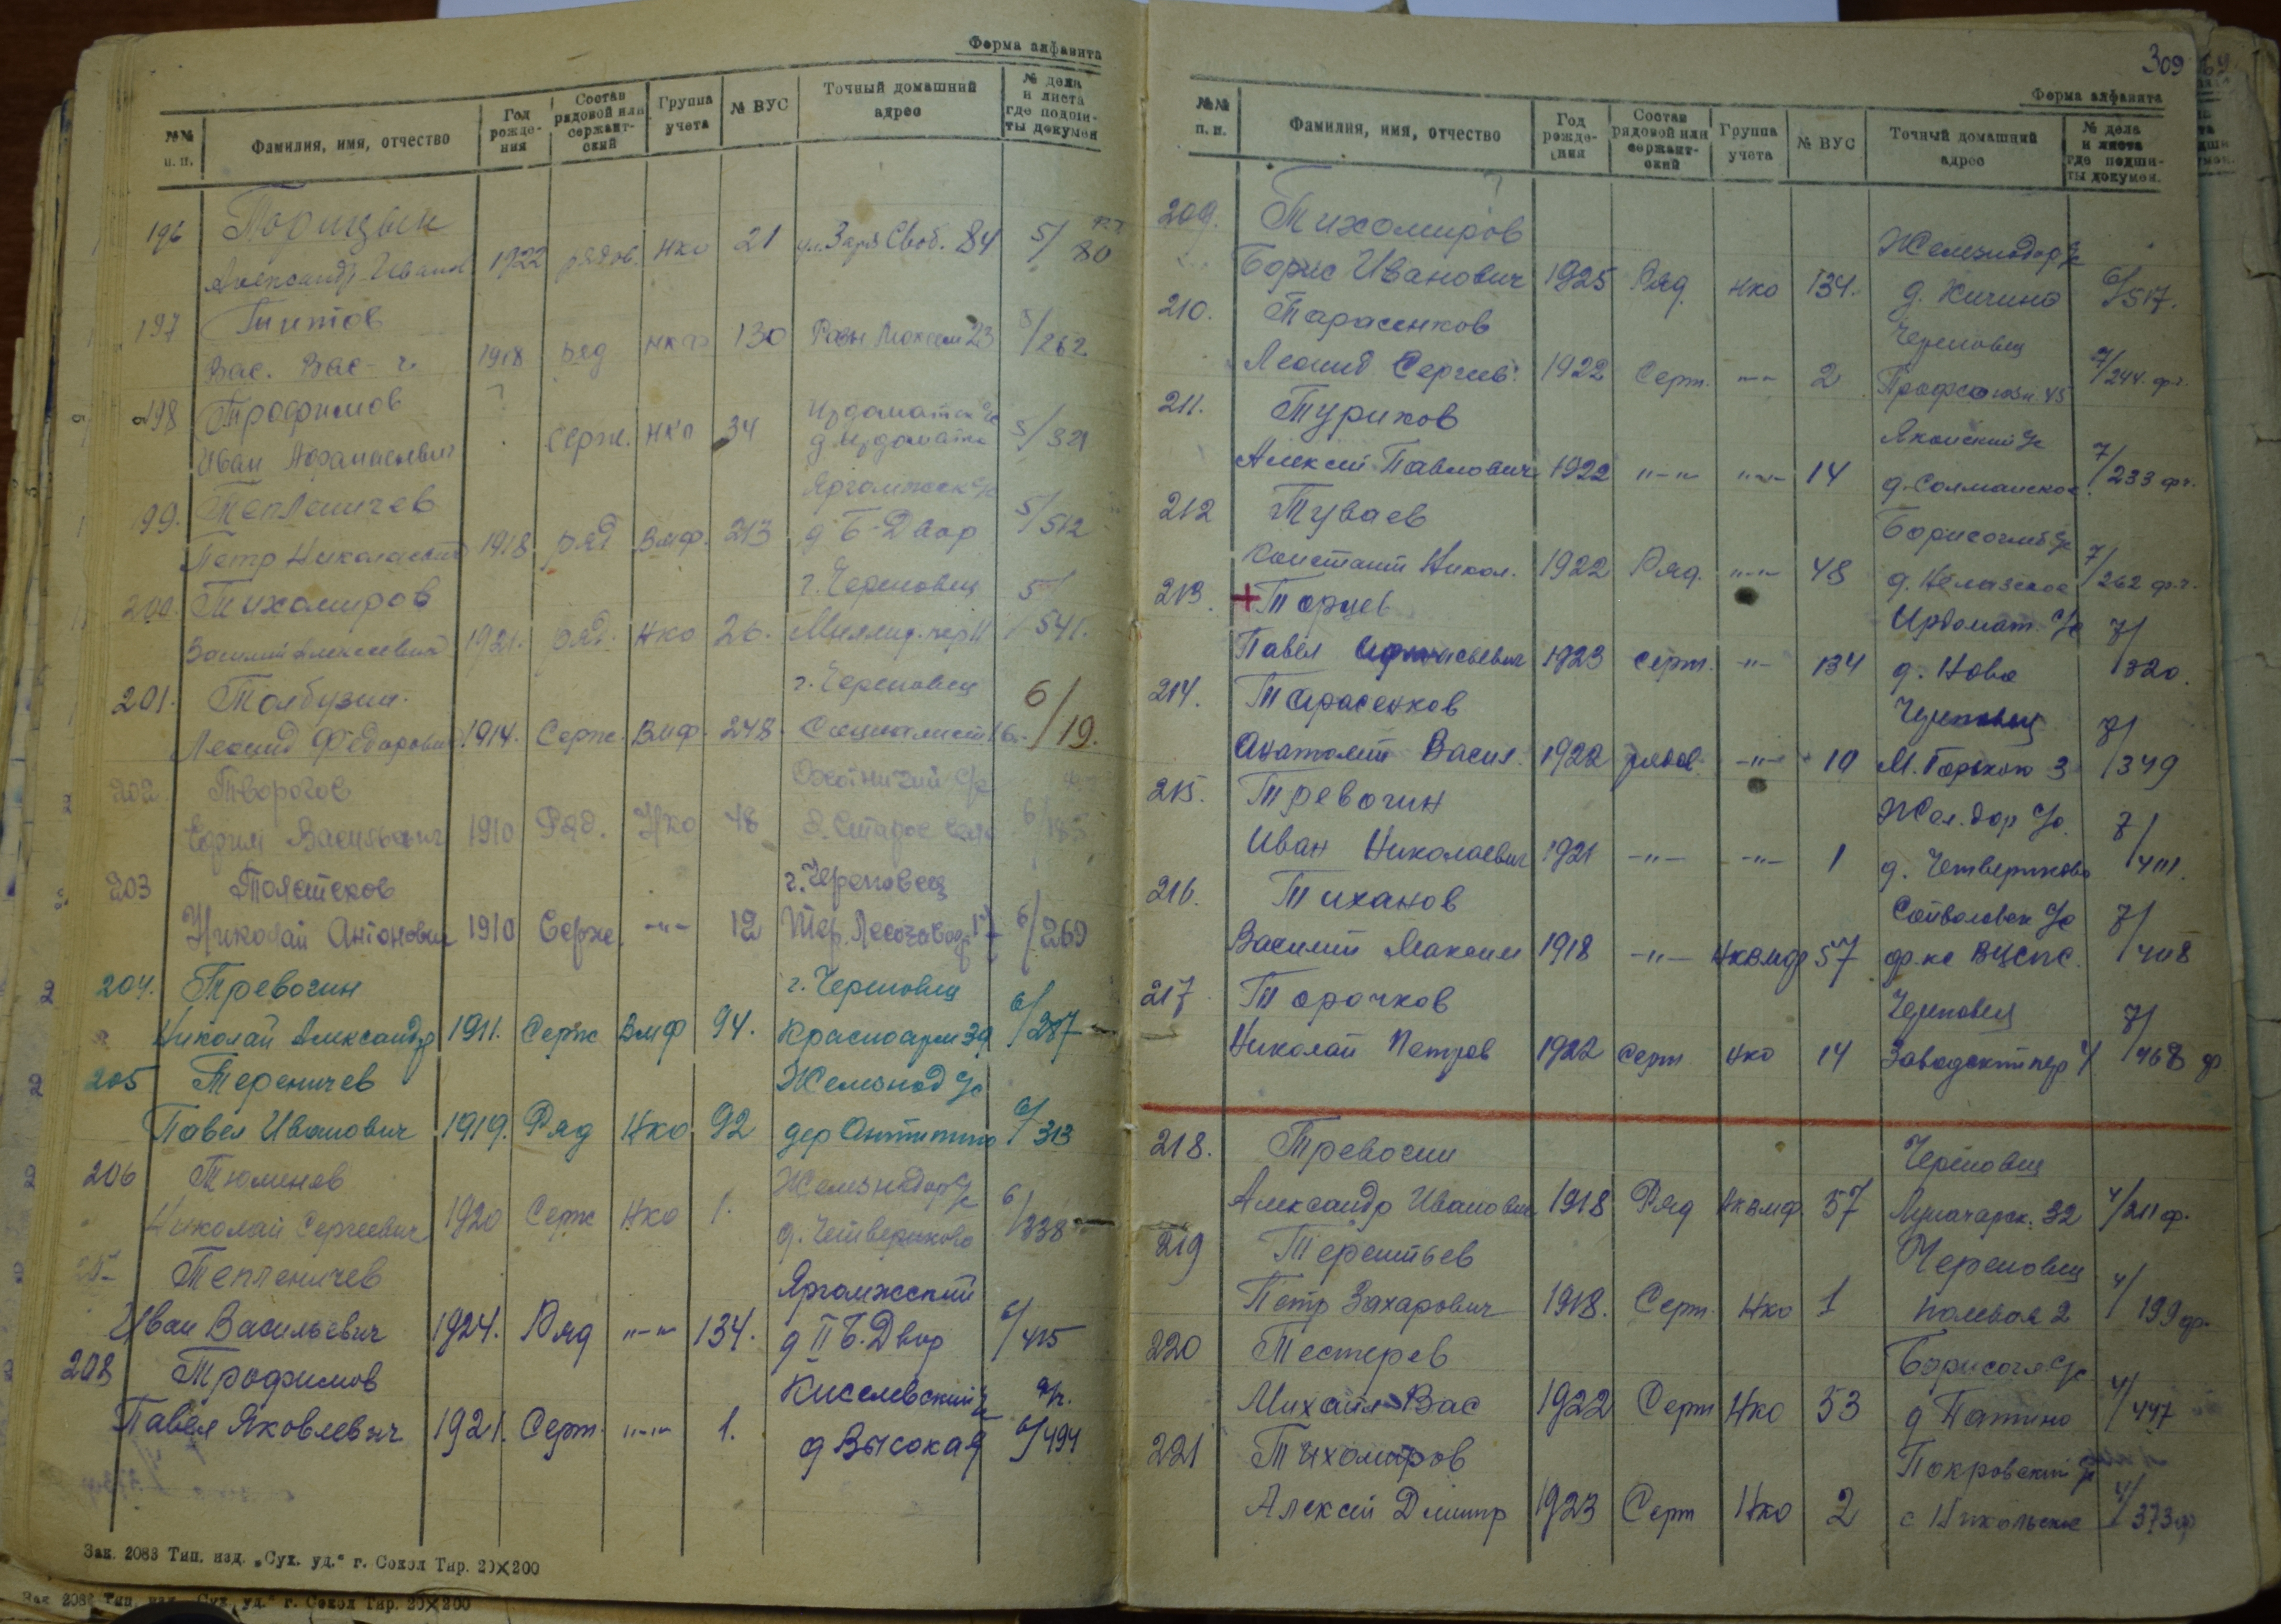 Форма алфавита
№№ п. п. Фамилия, имя, отчество Год рожде-ния Состав рядовой или сержант-ский Группа учета № ВУС Точный домашний адрес № дела и листа где подши-ты докумен
196 Торицын
Александр Иванов 1922 рядов. НКО 21 ул. Заря Своб. 84 5/80
197 Титов
Вас. Вас-ч. 1918 ряд 130 23 5/262
198 Трофимов
Иван Афанасьевич серж. НКО 34 5/321
199. Тепленичев
Петр Николаевич 1918 ряд ВМФ. 213 д Б-Двор 5/512
200. Тихомиров г. Череповец
Василий Алексеевич 1921. ряд. НКО 26. Миллиц. пер 11 5/541.
201. Толбузин. г. Череповец
Леонид Федорович 1914. Серж. ВМФ. 248. Социалист 6/19.
202 Творогов
Ефим Васильевич 1910 Ряд. НКО 48 д. Старое село
203 г. Череповец
Николай Антонович 1910 Серж. -"- 12 Тер. Лесозавода 6/269
204. Тревогин г. Череповец
Николай Александр 1911. Серж ВМФ 94. Красноарм 39 6/287
205 Тереничев Железнод с/с
Павел Иванович 1919. Ряд НКО 92 дер Антипино 6/313
206 Тюменев Железнодор с/с
Николай Сергеевич 1920 Серж НКО 1. д. Четвериково 6/338
Тепленичев Яргомжский
Иван Васильевич 1924. Ряд "-" 134. д II Б. Двор 6/415
208 Трофимов Киселевский с/с
Павел Яковлевич 1921. Серж. "-" 1. д Высокая 6/494
Зак. 2083 Тип. изд. „Сух. уд.“ г. Сокол Тир. 20×200
Зак. 2083 Тип. изд. „Сух. уд.“ г. Сокол Тир. 20×200
309
Форма алфавита
№№ п. п. Фамилия, имя, отчество Год рожде-ния Состав рядовой или сержант-ский Группа учета № ВУС Точный домашний адрес № дела и листа где подши-ты докумен.
209. Тихомиров Железнодор с/с
Борис Иванович 1925 Ряд. НКО 134. д. Кичино 6/517.
210. Тарасенков Череповец
Леонид Сергеев. 1922 Серж. "-" 2 Профсоюзн. 45 7/244. ф.
211. Туриков
Алексей Павлович 1922 "-" "-" 14 д. Солманское 7/233 фч.
212 Туваев Борисоглеб с/с
Констант Никол. 1922 Ряд. "-" 48 д. Нелазское 7/262 ф.ч.
213. + Торцев Ирдомат. с/с
Павел 1923 серж. -"- 134 д. Ново 7/320.
214. Тарасенков Череповец
Анатолий Васил. 1922 рядов. -"- 10 М. Горького 3 7/349
215. Тревогин Жел. дор с/с.
Иван Николаевич 1921 -"- -"- 1 д. Четвериково
216. Тиханов с/с
Василий Максим 1918 -"- НКВМФ 57 ф-ка ВЦСПС. 7/408
217 Торочков Череповец
Николай Петров 1922 серж НКО 14 Заводский пер 4 7/468 ф
218. Тревогин Череповец
Александр Иванович 1918 Ряд НКВМФ 57 Луначарск. 32 4/211 ф.
219 Терентьев Череповец
Петр Захарович 1918. Серж. НКО 1 Полевая 2 4/199 ф.
220 Тестерев Борисогл. с/с
Михаил Вас 1922 Серж НКО 53 4/447
221 Тихомиров Покровский с/с
Алексей Дмитр 1923 Серж НКО 2 с Никольское 4/373 ф